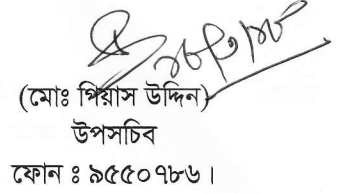 (মোঃ গিয়াস উদ্দিন)
উপসচিব
ফোন ঃ ৯৫৫০৭৮৬।